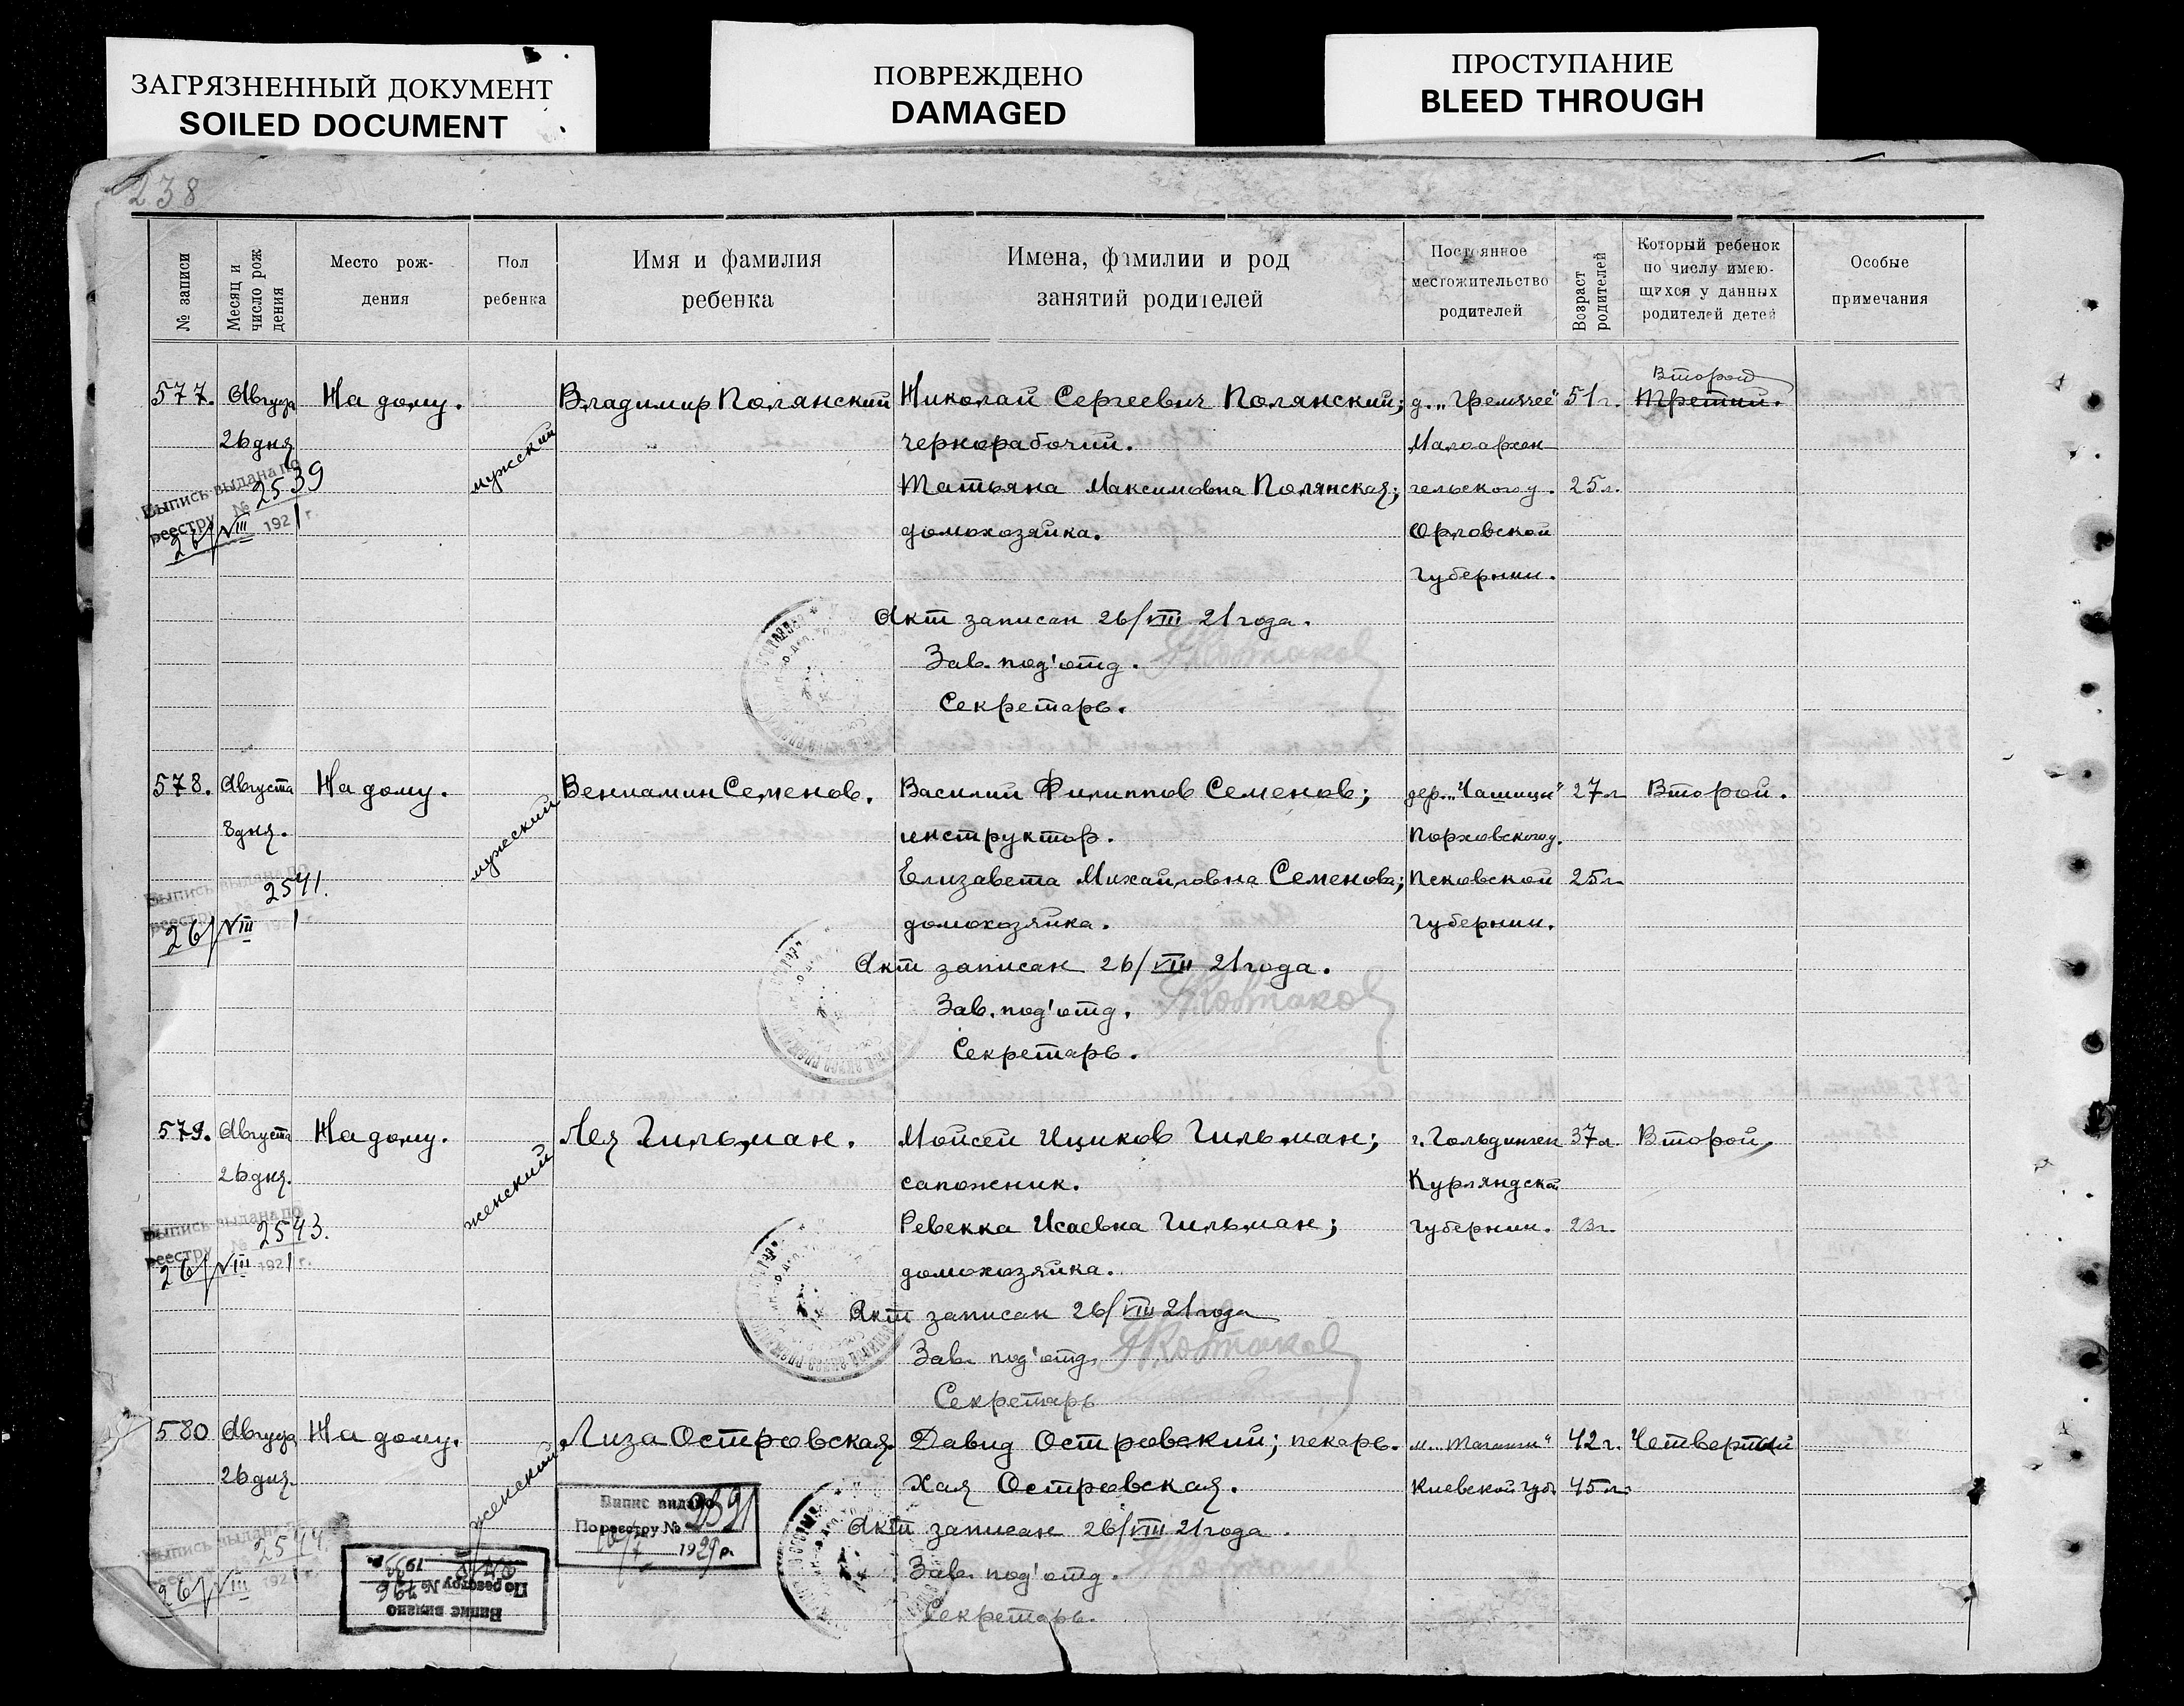 ЗАГРЯЗНЕННЫЙ ДОКУМЕНТ
SOILED DOCUMENT
ПОВРЕЖДЕНО
DAMAGED
ПРОСТУПАНИЕ
BLEED THROUGH
238
№ записи
Месяц и число рождения
Место рождения
Пол ребенка
Имя и фамилия ребенка
Имена, фамилии и род занятий родителей
Постоянное местожительство родителей
Возраст родителей
Который ребенок по числу имеющихся у данных родителей детей
Особые примечания
Второй
577. Августа На дому. мужской Владимир Полянский Николай Сергеевич Полянский; д. „Гремячее" 51 г. Третий.
26 дня чернорабочий. Малоархан
Выпись выдана по Татьяна Максимовна Полянская; гельского у. 25 л.
реестру № 2539 домохозяйка. Орловской
26/VIII 1921 г. губернии.
Акт записан 26/VIII 21 года.
Зав. под'отд.
Секретарь.
578. Августа На дому. мужской Вениамин Семенов. Василий Филиппов Семенов; дер. 27 л Второй.
8 дня. инструктор. Порховского у.
Выпись выдана по Елизавета Михайловна Семенова; Псковской 25 л
реестру № 2541. домохозяйка. губернии.
26/VIII 1921 г.
Акт записан 26/VIII 21 года.
Зав. под'отд.
Секретарь.
579. Августа На дому. женский Лея Гильман. Мойсей Ициков Гильман; г. Гольдинген 37 л. Второй,
26 дня. сапожник. Курляндской
Выпись выдана по Ревекка Исаевна Гильман; губернии. 23 г.
реестру № 2543. домохозяйка.
26/VIII 1921 г.
Акт записан 26/VIII 21 года
Зав. под'отд.
Секретарь
580 Августа На дому. женский Лиза Островская. Давид Островский; пекарь. м. 42 г. Четвертый
26 дня. Хая Островская. Киевской губ. 45 л.
Выпись выдана по
реестру № 2544.
26/VIII 1921 г.
Акт записан 26/VIII 21 года.
Зав. под'отд.
Секретарь.
Випис видано
По реестру №
192 р.
Випис видано
По реестру № 796